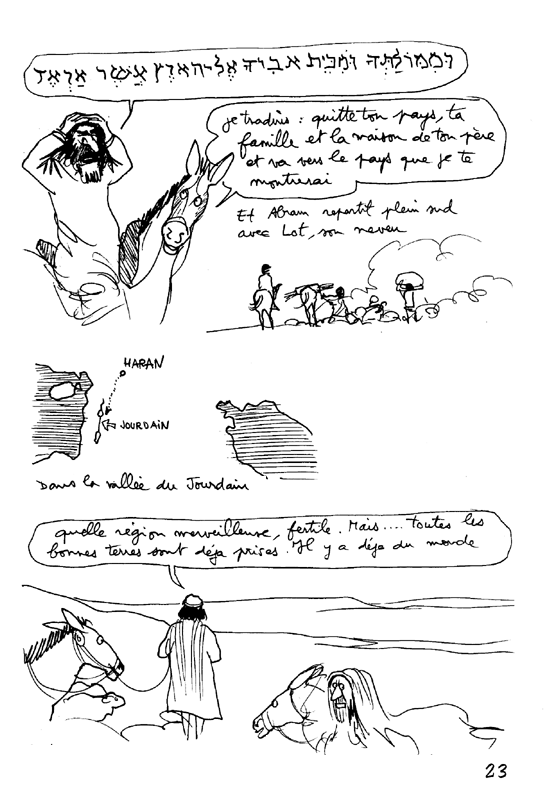 וּמִמוֹלַתְּךָ וּמִבֵּית אבִיךָ אֶל־הארץ אֲשֶׁר אַרְאֶךָ
je traduis : quitte ton pays, ta
famille et la maison de ton père
et va vers le pays que je te
montrerai
Et Abram repartit plein sud
avec Lot, son neveu
HARAN
JOURDAIN
Dans la vallée du Jourdain
quelle région merveilleuse, fertile. Mais.... toutes les
bonnes terres sont déja prises. Il y a déja du monde
23